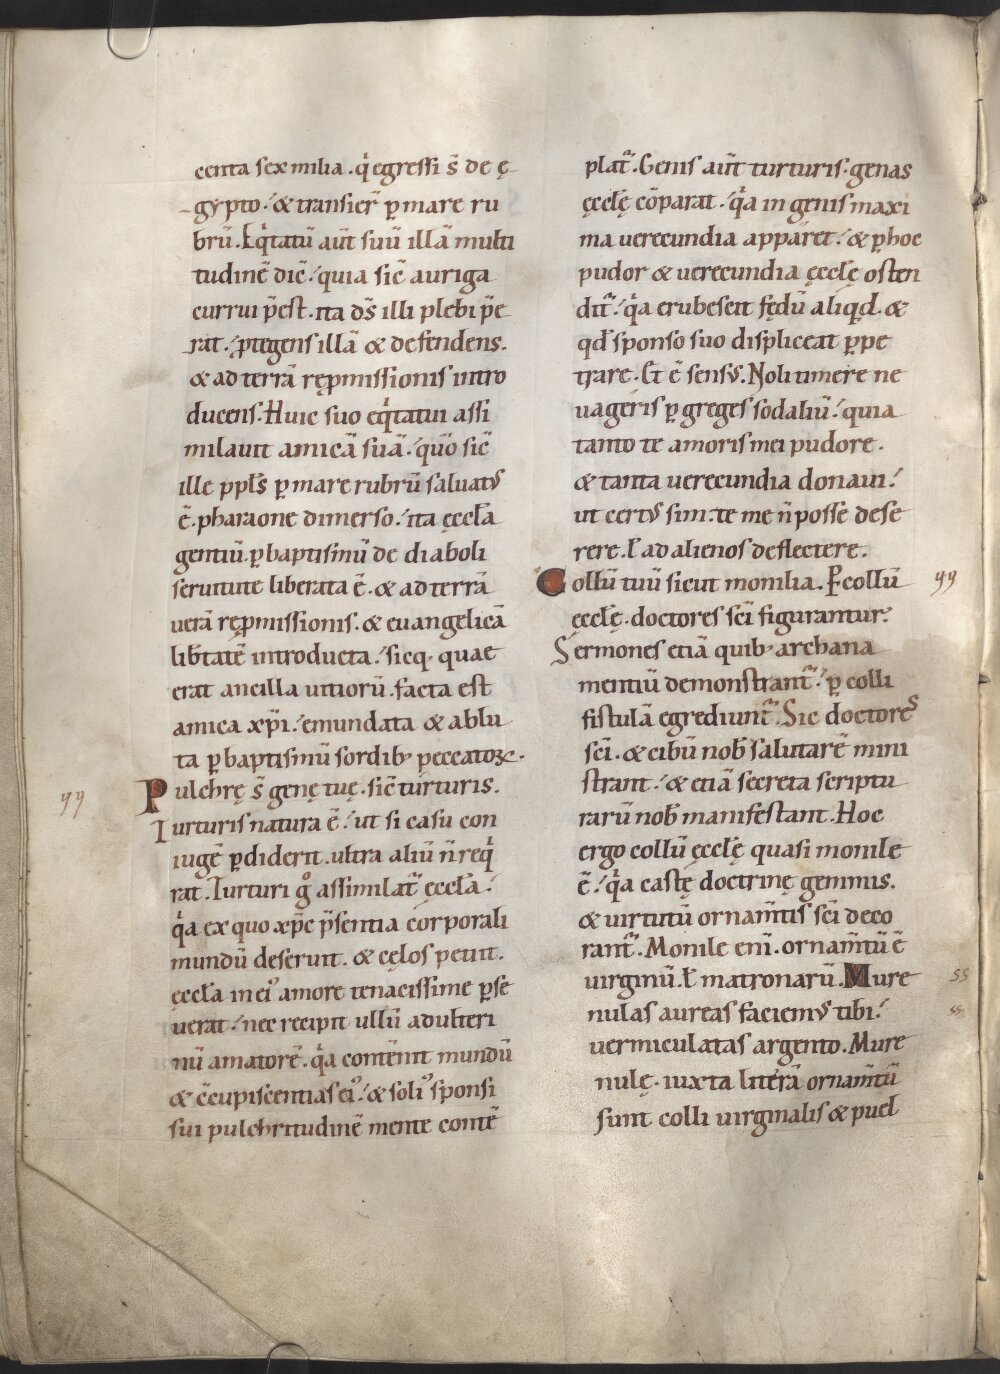 centa sex milia. q̇ egressi s̄ de ę
gypto.' & transier̄ p̱ mare ru
brū. Eq̇tatū aut̄ suū illā multi
tudinē dic̄.' quia sic̄ auriga
currui p̄est. ita ds̄ illi plebi p̄e
rat. ꝓtegens illā & defendens.
& ad terrā ręꝓmissionis intro
ducens. Huic suo eq̇tatui assi
milauit amicā suā.' quō sic̄
ille ppl̄s ꝑ mare rubrū saluatꝰ
ē. pharaone dimerso.' ita ęccl̄a
gentiū. ꝑ baptismū de diaboli
seruitute liberata ē. & ad terrā
uerā ręꝓmissionis. & euangelicā
lib̄tatē introducta.' sicq. quae
erat ancilla uitiorū. facta est
amica xp̄i.' emundata & ablu
ta ꝑ baptismū sordib; peccatoꝝ.
yy Pulchrę s̄ genę tuę. sic̄ turturis.
Turturis natura ē.' ut si casu con
iugē ꝑdiderit. ultra aliū n̄ req̇
rat. Turturi g̊ assimilat᷑ ęccl̄a.'
q̇a ex quo xp̄c p̄sentia corporali
mundū deseruit. & cęlos petiit.
ęccl̄a in eiꝰ amore tenacissime ꝑse
uerat.' nec recipit ullū adulteri
nū amatorē. q̇a contēnit mundū
& c̄cupiscentias eiꝰ.' & soliꝰ sponsi
sui pulchritudinē mente contē
plat᷑. Genis aut̄ turturis. genas
ęccl̄ę cōparat.' q̇a in genis maxi
ma uerecundia apparet.' & ꝑ hoc
pudor & uerecundia ęccl̄ę osten
dit᷑.' q̇a erubescit fędū aliqd. &
qd̄ sponso suo displiceat ꝑpe
trare. Et ē sensꝰ. Noli timere ne
uageris ꝑ greges sodaliū.' quia
tanto te amoris mei pudore.
& tanta uerecundia donaui.'
ut certꝰ sim. te me n̄ posse dese
rere. ł ad alienos deflectere.
Collū tuū sicut monilia. P̱ collū yy
ęccl̄ę. doctores sc̄i figurantur.
Sermones etiā quib; archana
mentiū demonstrant᷑.' ꝑ colli
fistulā egrediunt᷑. Sic doctores
sc̄i. & cibū nob̄ salutarē mini
strant.' & etiā secreta scriptu
rarū nob̄ manifestant. Hoc
ergo collū ęccl̄ę quasi monile
ē.' q̇a castę doctrinę gemmis.
& uirtutū ornam̄tis sc̄i deco
rant᷑. Monile eni̅. ornam̄tū ē
uirginū. ł matronarū. Mure ss
nulas aureas faciemꝰ tibi.' ss
uermiculatas argento. Mure
nulę. iuxta literā ornam̄tū
sunt colli uirginalis & puel